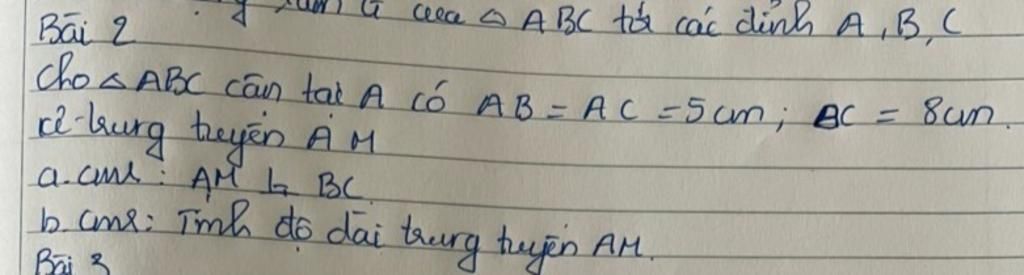 trọng tâm G của △ ABC tới các đỉnh A, B, C
Bài 2
Cho △ ABC cân tại A có AB = AC = 5cm; BC = 8cm.
kẻ trung tuyến AM
a. cmr: AM ⊥ BC
b. cmr: Tính độ dài trung tuyến AM.
Bài 3